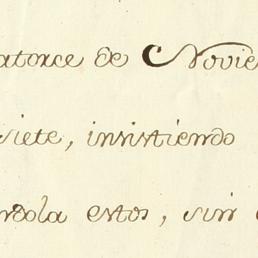 atorce de Noviè
siete, insistiendo
ndola estos, sin